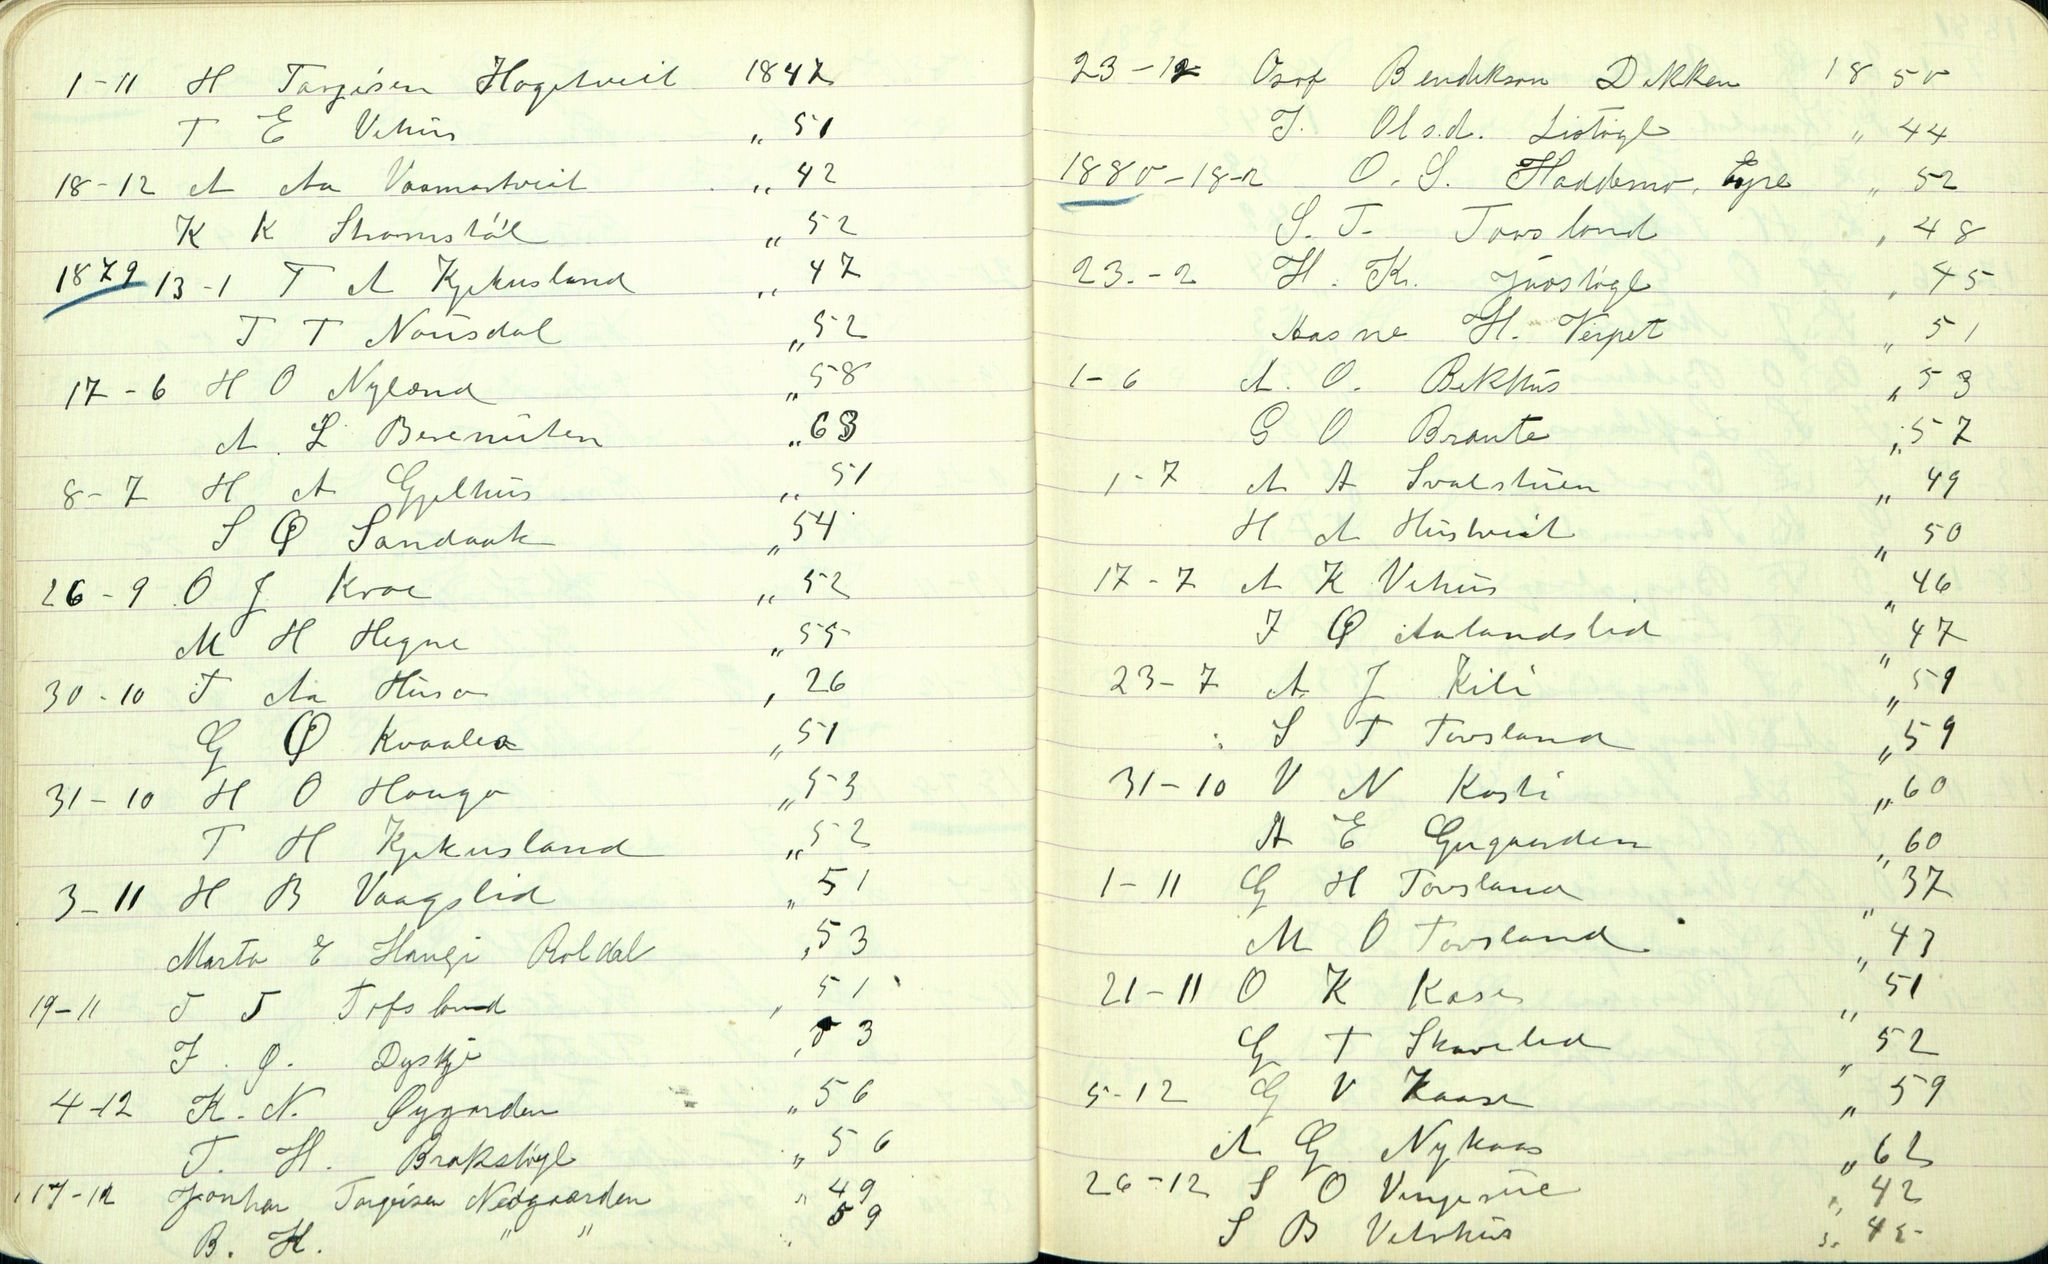 1-11 H Torgisen Hogetveit 1847
T E Vehus " 51
18-12 A Aa Vaamartveit " 42
K K Straumstöl " 52
1879 13-1 T A Kjekusland " 47
T T Nousdal " 52
17-6 H O Nyland " 58
A L Berenuten " 63
8-7 H A Gjelhus " 51
S Ø Sandaak " 54
26-9 O J Kroe " 52
M H Hegne " 55
30-10 T Aa Huso " 26
G Ø Kvaalea " 51
31-10 H O Hauga " 53
T H Kjekusland " 52
3-11 H B Vaagslid " 51
Marta E Haugi Roldal " 53
19-11 T T Tofsland " 51
I. Ø. Dyskje " 53
4-12 K. N. Øygarden " 56
T. H. Brakstögl " 56
17-12 Torgeisen Nedgaarden " 49
B. H. " " " 59
23-12 Bendikson Dekken 1850
J. Ols.d. Listögl " 44
1880-18-2 O. S. Haddemo. " 52
S. T. Tovsland " 48
23.-2 H. K. Juvstögl " 45
Aasne H. Verpet " 51
1-6 A. O. Bekhus " 53
G O Braute " 57
1-7 A A Svalestuen " 49
H A Hustveit " 50
17-7 A K Vehus " 46
I Ø Aalandslid " 47
23-7 A J Kili " 59
S T Tovsland " 59
31-10 V N Kosti " 60
A E Gugaarden " 60
1-11 G H Tovsland " 37
M O Tovsland " 43
21-11 O K Kase " 51
G T Skavelid " 52
5-12 G V Kaase " 59
A G Nykaas " 62
26-12 S O Vinjerue " 42
S B Vehus " 45